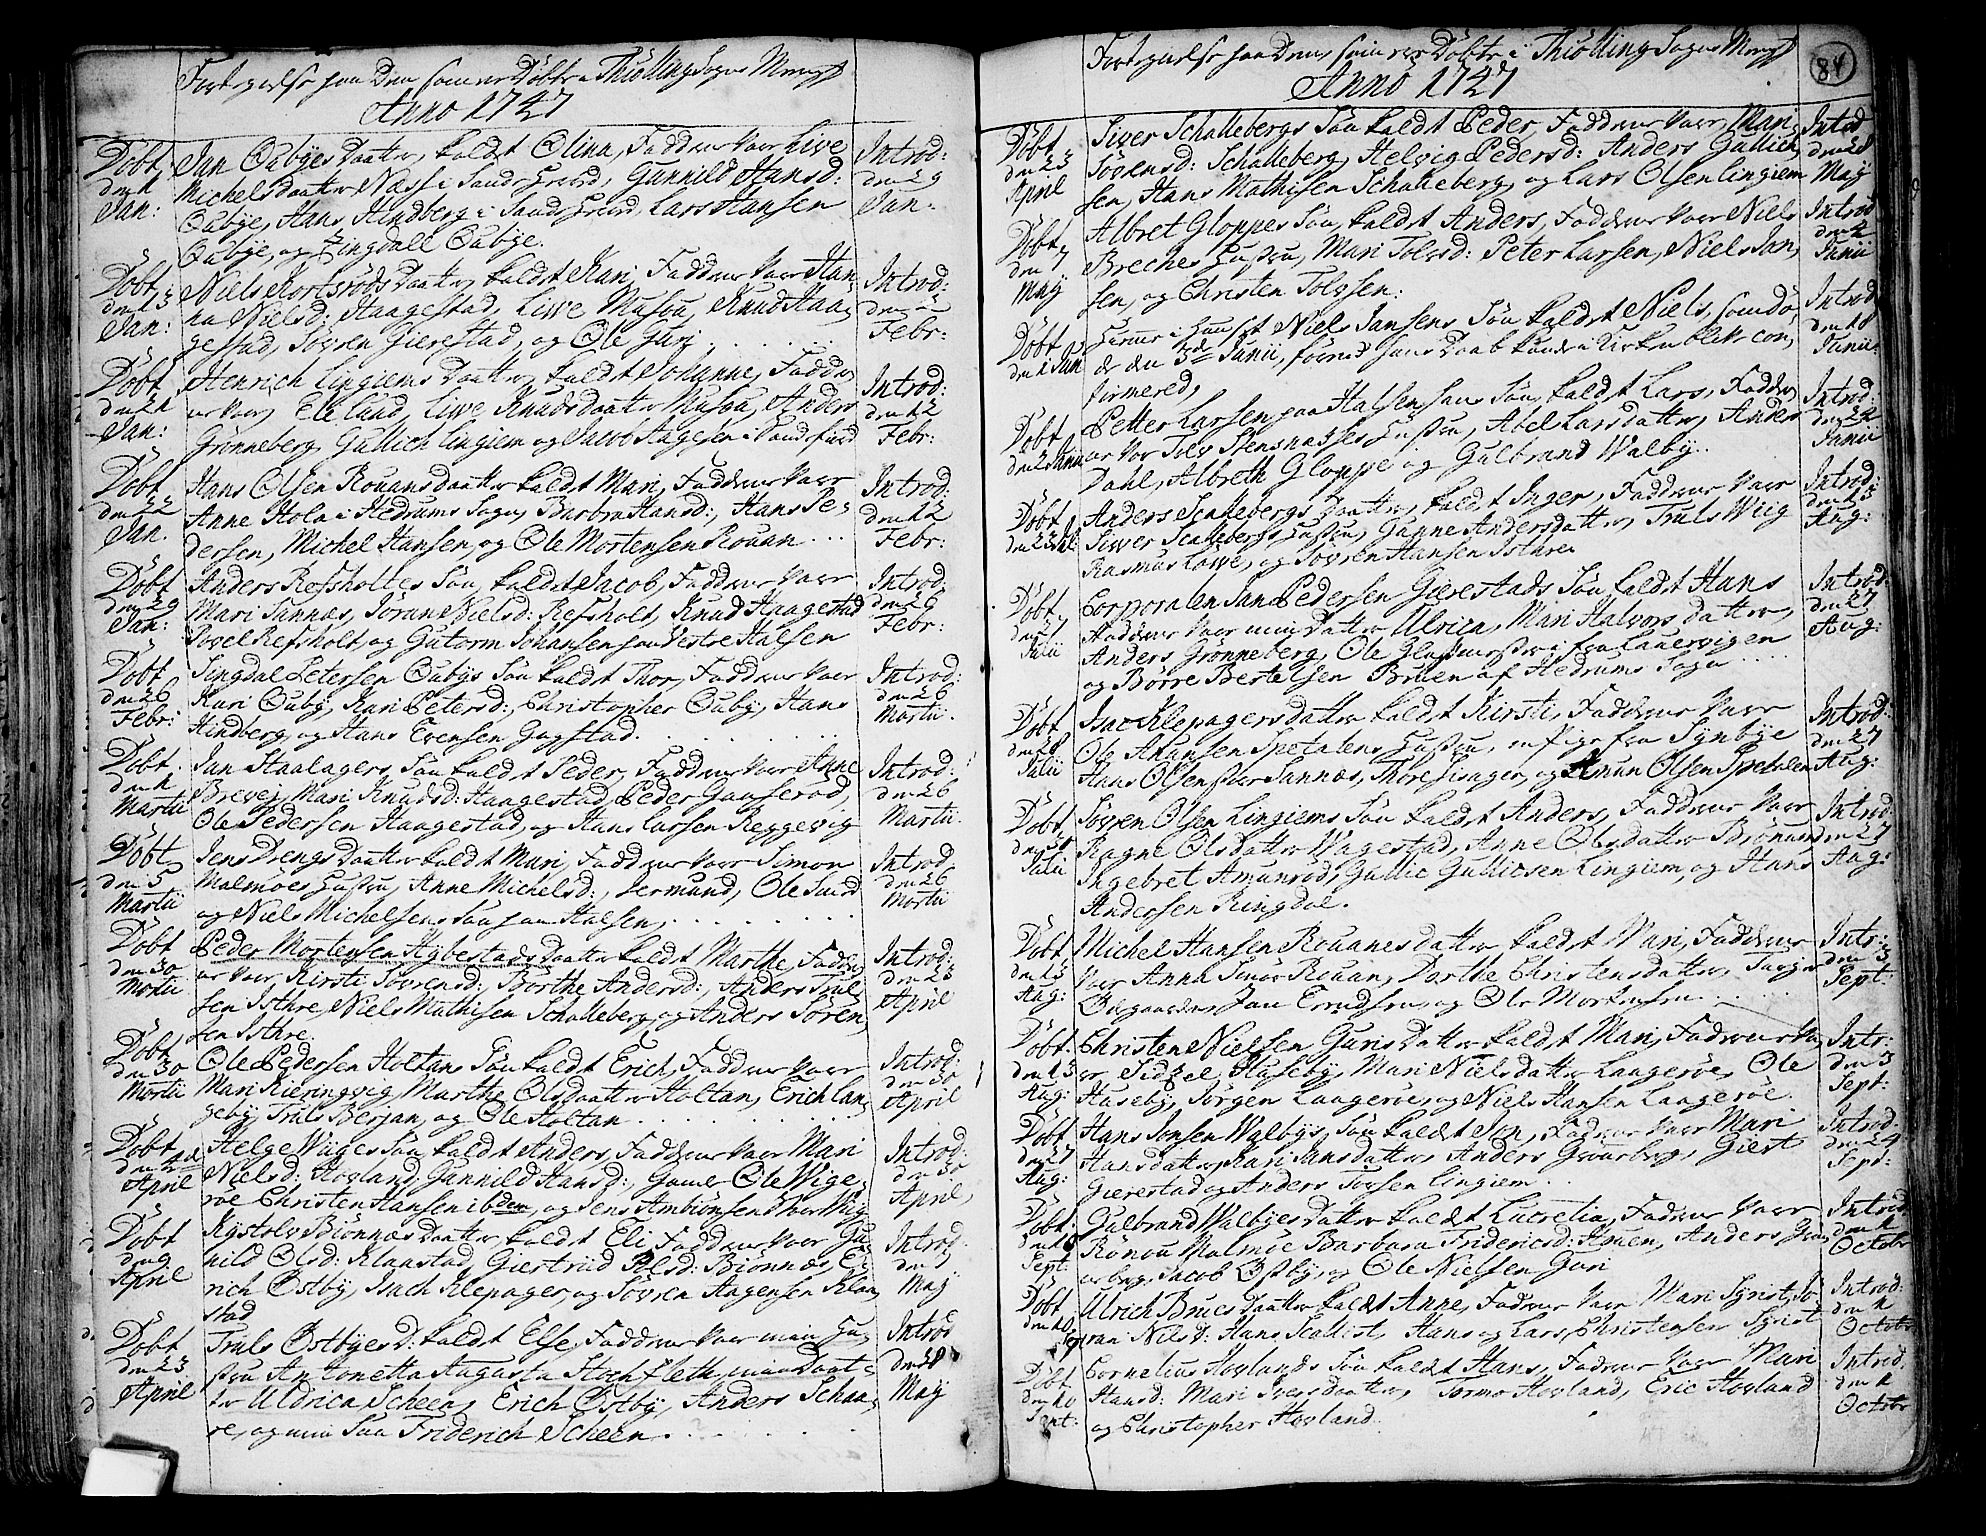 Fortegnelse paa Dem som er Döbte i Thiölling Sogns Menigh
Anno 1747
Döbt
den 1
Jan:
Jan Oubyes Daatter kaldet Olina, Faddrene Vare Live
Michelsdaatter Næss i Sandefiord, Gunnild Hansd:
Oubye, Hans Hindberg i Sandefiord, Lars Hansen
Oubye, og Tingdall Oubye.
Introd:
den 29
Jan.
Döbt
den 15
Jan:
Niels Kortsröds Daatter kaldet Kari, Faddrene Vare Han-
na Nielsd: Haagestad, Liwe Musøu, Knud Haa-
gestad, Sövren Gierestad, og Ole Guri
Introd:
Febr:
Döbt
den 21
Jan:
Henrich Lingiems Daatter, kaldet Johanne, Faddr-
ene Vare, Ele Lund, Liwe Knudsdaatter Musøu, Anders
Grönneberg, Gullich Lingiem og Jacob Aagesen i Sandefiord
Introd:
den 12
Febr:
Döbt
den 22
Jan.
Hans Olsen Rouans daatter kaldet Mari, Faddrene Vare
Anne Hola i Hedrums Sogn, Barbra Hansd:, Hans Pe-
dersen, Michel Hansen, og Ole Mortensen Rouan
Introd:
den 12
Febr:
Döbt
den 29
Jan:
Anders Refsholtes Søn, kaldet Jacob, Faddrene Vare
Mari Sannæs, Söran Nielsd: Refsholt, Knud Haagestad
Povel Refsholt, og Gutorm Johansen paa Vestre Halsen
Introd:
den 26
Febr:
Döbt
den 26
Febr:
Tingdal Petersen Oubys Søn kaldet Thor, Faddrene Vare
Kari Ouby, Kari Petersd:, Christopher Ouby, Hans
Hindberg, og Hans Evensen Gogstad
Introd:
den 26
Martii.
Döbt.
den 1
Martii
Jan Haalagers Søn kaldet Peder, Faddrene Vare Anne
Brevej, Mari Knudsd: Haagestad, Peder Gonserød,
Ole Pedersen Haagestad, og Hans Larsen Reggevig
Introd:
den 26
Martii.
Döbt
den 5
Martii
Jens Drengs Daatter kaldet Mari, Faddrene Vare Simon
Malmöes Hustru, Anne Michelsd:, Germund, Ole Smed
og Niels Michelsens Søn paa Halsen
Introd
den 26
Martii
Döbt
den 30
Martii
Peder Mortensen Hybestads Daatter kaldet Marthe, Faddr-
ene Vare Kirsti Sövrensd:, Börthe Andersd:, Anders Trul-
sen Isthre, Niels Mathisen Schalleberg, og Anders Sören-
sen Isthre
Introd:
den 23
April
Döbt
den 30
Martii
Ole Pedersen Holtans Søn kaldet Erich, Faddrene Vare
Mari Kieringvig, Marthe Olsdaatter Holtan, Erich Lan-
geby, Truls Berjan, og Ole Holtan
Introd:
den 30
April
Döbt
den 2den
April
Helge Wiiges Søn kaldet Anders, Faddrene Vare Mari
Nielsd: Hovland, Gunnild Hansd:, Gamer Ole Wige,
Christen Hansen ibdem, og Jens Ambiörnsen Thor Wiig
Introd:
den 30
April
Döbt
den 9
April
Kystolv Biönnæs Daatter kaldet Eli, Faddrene Vare Gu-
nild Olsd: Klaastad, Giertriid Pålsd: Biönnæs, E-
rich Östby, Isach Klepager, og Sövren Aagensen Klaa-
stad
Introd:
den 7
Maij
Döbt
den 23
April
Truls Östbyes D: kaldet Else, Faddrene Vare min Hu-
stru Antonetta Augusta Hochfleth, min Daat-
ter Uldrica Scheen, Erich Östby, Anders Schaa-
re, og min Søn Friderich Scheen.
Introd
den 28
Maij
Fortegnelse paa Dem som er Döbte i Thiölling Sogns Menigh
84
Anno 1747
Döbt
den 23
April
Siver Schallebergs Søn kaldet Peder, Faddrene Vare, Mari
Sövrensd: Schalleberg, Helvig Pedersd: Anders Gullich-
sen, Hans Mathisen Schalleberg, og Lars Olsen Lingiem
Introd
den 28
Maij
Döbt
den 7
Maij
Albret Gloppes Søn, kaldet Anders, Faddrene Vare Niels
Breches Hustru, Mari Tolvsd: Peter Larsen, Niels Jan-
sen, og Christen Tolvsen:
Introd
den 2
Junii
Döbt
den 1 Jun
Niels Jansens Søn kaldet Niels, som dö-
de den 3de Junii, förend hans Daab kunde i Kirken blive con-
firmered,
Introd
den 18
Junii.
Döbt
den 2 Junii
Petter Larsen paa Halsen hans Søn kaldet Lars, Faddr-
ene Var Tolv Stensnæsses Hustru, Abel Larsdatter, Anders
Dahl, Albreth Gloppe og Gulbrand Walby.
Introd:
Junii
Döbt
den 23 Jul
Anders Scallebergs Daatter, kaldet Inger, Faddrene Vare
Siwer Scallebergs Hustru, Gunne Andersdatter, Truls Wiig
Rasmus Lowe, og Sovren Hansen Isthre
Introd:
den 13
Aug:
Döbt
den 7
Julii
Corporalen Jan Pedersen Gierestads Søn kaldet Hans
Faddrene Vare min Datter Ulrica, Mari Halvors datter,
Anders Grönneberg, Ole Glasmester i fra Lauervigen
og Börre Bertelsen Bruen af Hedrums Sogn
Introd:
den 27
Aug:
Döbt
den 28
Julii
Isac Klepagers datter kaldet Kirsti, Faddrene Vare
Ole Ahansen Spetalens Hustru, en Pige fra Synbye
Hans Olsen Sannæs, Thore, og Amun Olsen Spetalen
Introd:
den 27
Aug:
Döbt
den 30
Julii
Sövren Olsen Lingiems Søn kaldet Anders, Faddrene Vare
Ragne Olsdatter Wagestad, Anne Olsdatter Brönum
Ingebret Amunröd, Gullic Gullicsen Lingiem, og Hans
Andersen Ringdal.
Introd:
den 27
Aug:
Döbt
den 13
Aug:
Michel Hansen Rouanes datter kaldet Mari, Faddrene
Var Anna Smör Rouan, Dorthe Christensdatter, Tarjer
Bisgaarden, Jan Erudsen, og Ole Mortensen
Intr:
den 3
Sept:
Döbt:
den 13
Aug:
Christen Nielsen Guris datter kaldet Mari, Fadrene Va-
re Sidzel Huseby, Mari Nielsdatter Laageröe, Ole
Huseby, Jörgen Laageröe, og Niels Hansen Laageröe
Intr:
den 3
Sept:
Döbt
den 27
Aug:
Hans Jonsen Walbys, Søn kaldet Jon, Fadrene Vare Mari
Hansdatter, Kari Jansdatter, Anders Gronberg, Giert
Gierestad og Anders Torsen Lingiem
Introd.
den 24
Sept:
Döbt:
den 10
Sept:
Gulbrand Walbyes datter kaldet Lucretia, Fadrene Vare
Rönou Malmöe Barbara Fridericsd: Amen, Anders Grön-
erberg, Jacob Östby, og Ole Nielsen Guri
Introd:
den 1
Octobr
Döbt:
den 10
Sept
Ulrich Brues daatter kaldet Anne, Fadrene Vare Mari Syrist, Sö-
ran Nielsd: Hans Scallist, Hans og Lars Christensen Syrist
Introd:
den 1
Octobr
Döbt
den 10
Sept:
Cornelius Hovlands Søn kaldet Hans, Fadrene Vare Mari
Hansd: Mari Iversdaatter, Tormo Hovland, Eric Hovland
og Christopher Hovland.
Introd.
den 1
Octobr